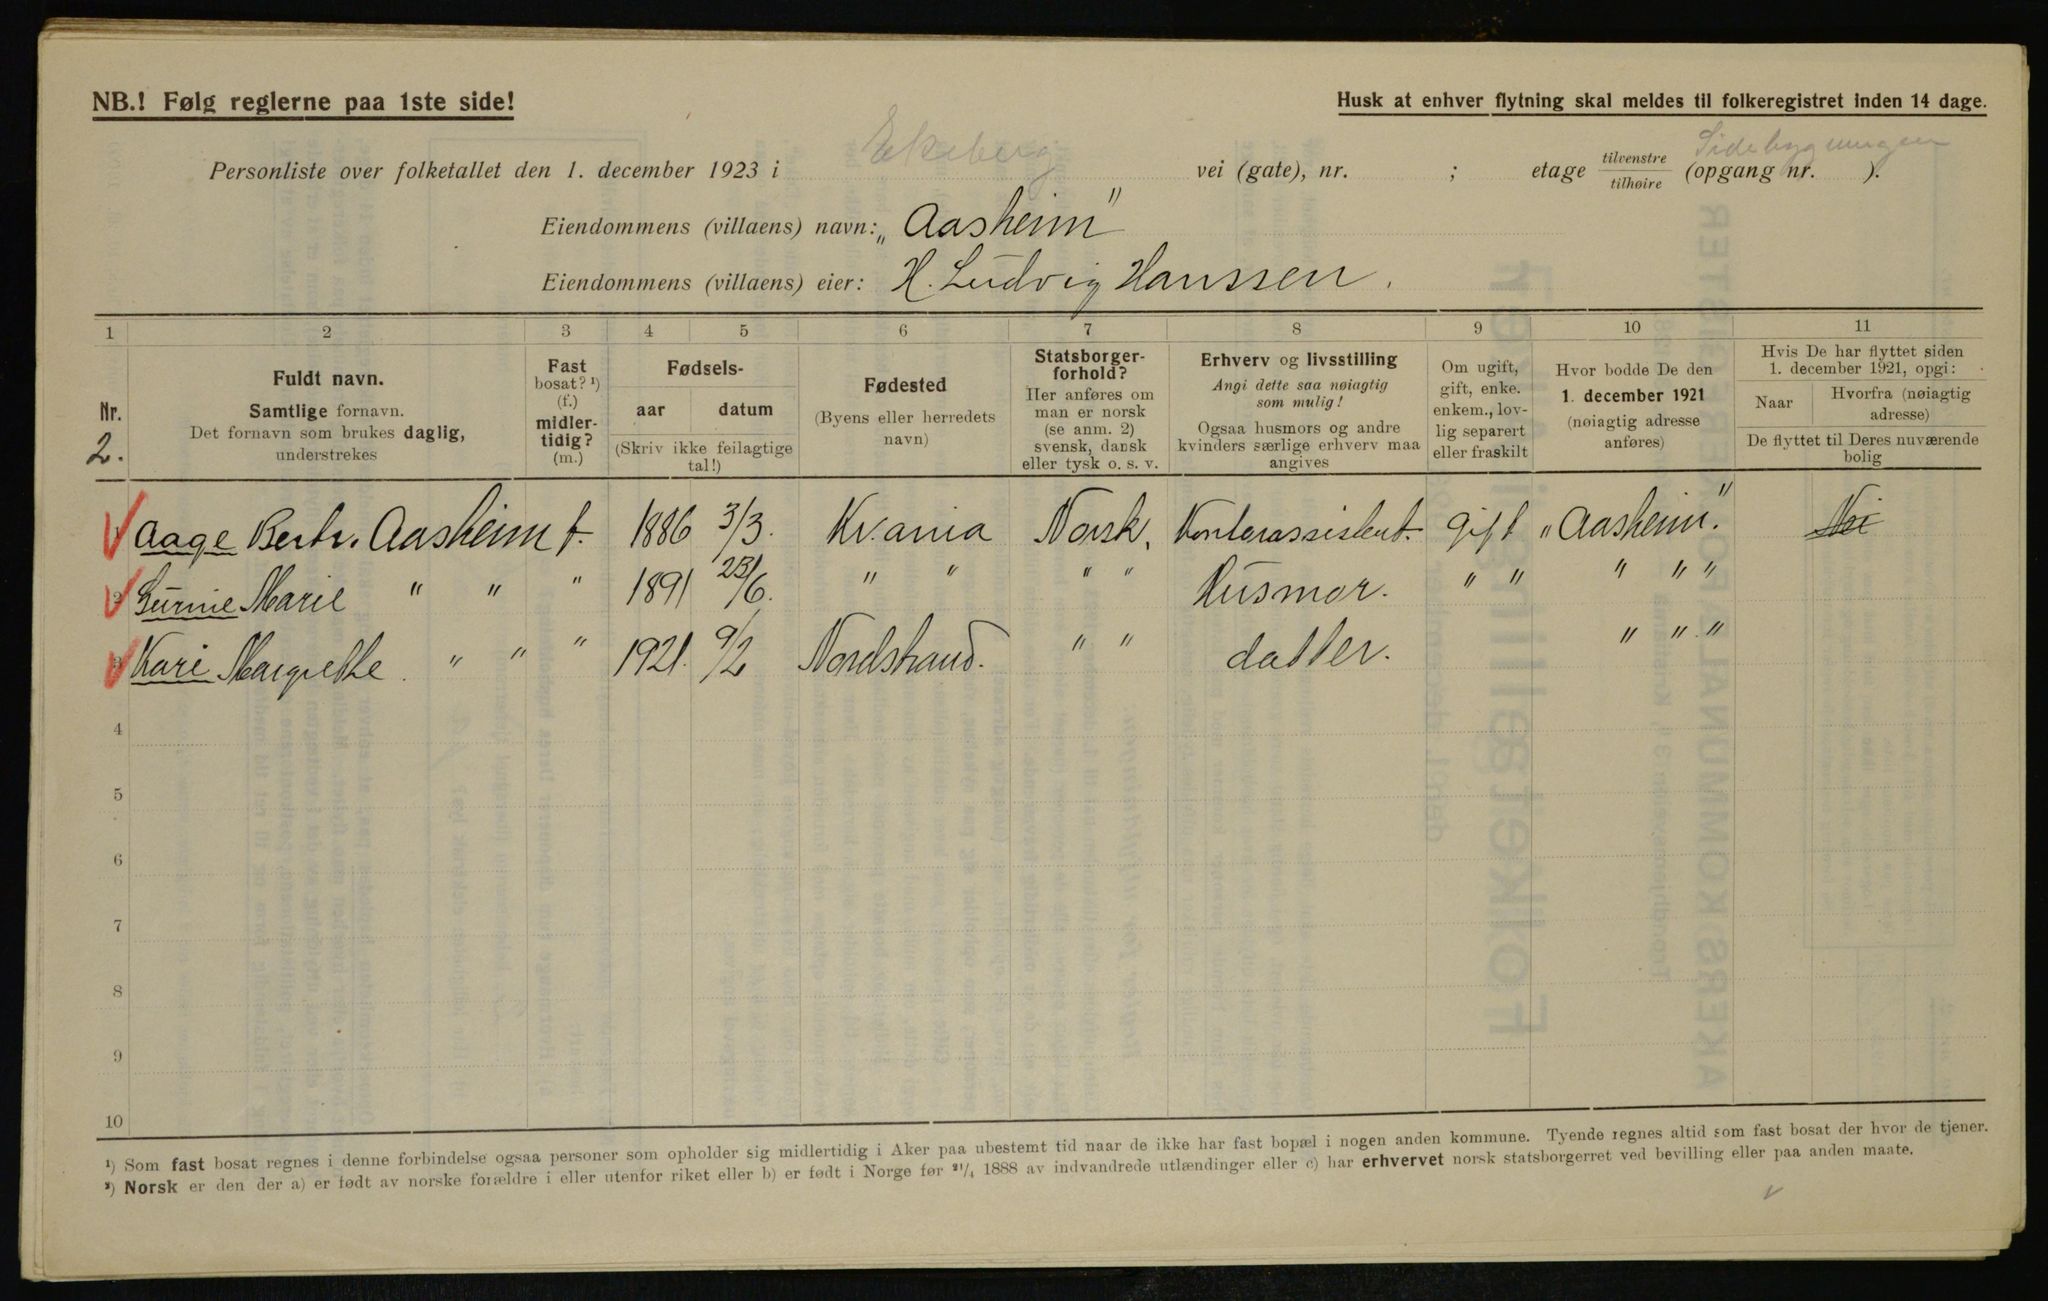 NB.! Følg reglerne paa 1ste side!
Husk at enhver flytning skal meldes til folkeregistret inden 14 dage.
Personliste over folketallet den 1. december 1923 i Ekeberg vei (gate), nr. ; etage tilvenstre tilhøire (opgang nr. ).
Sidebygningen
Eiendommens (villaens) navn: „Aasheim"
Eiendommens (villaens) eier: H. Ludvig Hanssen.
1 2 3 4 5 6 7 8 9 10 11
Nr.
2.
Fuldt navn.
Samtlige fornavn.
Det fornavn som brukes daglig,
understrekes
Fast
bosat? ¹)
(f.)
midler-
tidig?
(m.)
Fødsels-
aar datum
(Skriv ikke feilagtige
tal!)
Fødested
(Byens eller herredets
navn)
Statsborger-
forhold?
Her anføres om
man er norsk
(se anm. 2)
svensk, dansk
eller tysk o. s. v.
Erhverv og livsstilling
Angi dette saa nøiagtig
som mulig!
Ogsaa husmors og andre
kvinders særlige erhverv maa
angives
Om ugift,
gift, enke.
enkem., lov-
lig separert
eller fraskilt
Hvor bodde De den
1. december 1921
(nøiagtig adresse
anføres)
Hvis De har flyttet siden
1. december 1921, opgi:
Naar
Hvorfra (nøiagtig
adresse)
De flyttet til Deres nuværende
bolig
1 Aage Bertr. Aasheim f. 1886 3/3. Kr.ania Norsk. Kontorassistent. gift „Aasheim". Nei
2 Gunnie Marie " " " 1891 23/6. " " " " Husmor. " " " " "
3 Kari Margrethe " " " 1921. 9/2 Nordstrand. " " datter. " " "
4
5
6
7
8
9
10
¹) Som fast bosat regnes i denne forbindelse ogsaa personer som opholder sig midlertidig i Aker paa ubestemt tid naar de ikke har fast bopæl i nogen anden kommune. Tyende regnes altid som fast bosat der hvor de tjener.
²) Norsk er den der a) er født av norske forældre i eller utenfor riket eller b) er født i Norge før ²¹/₄ 1888 av indvandrede utlændinger eller c) har erhvervet norsk statsborgerret ved bevilling eller paa anden maate.